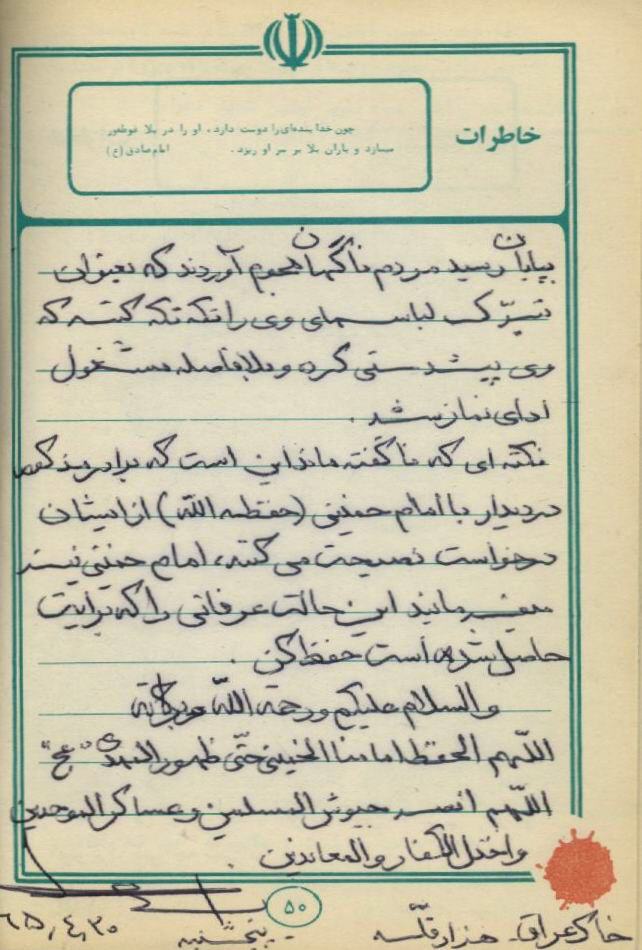 خاطرات
چون خدا بنده‌ای را دوست دارد، او را در بلا غوطه‌ور
میسازد و باران بلا بر سر او ریزد. امام صادق (ع)
بپایان رسید مردم ناگهان هجوم آوردند که بعنوان
تبرّک لباسهای وی را تکه تکه کنند که
وی پیشدستی کرده و بلافاصله مشغول
ادای نماز شد.
نکته ای که ناگفته ماند این است که برادر مذکور
در دیدار با امام خمینی (حفظه الله) از ایشان
درخواست نصیحت می کند، امام خمینی نیز
میفرمانید این حالت عرفانی را که برایت
حاصل شده است حفظ کن.
والسلام علیکم ورحمة اللّه وبرکاته
اللّهم احفظ امامنا الخمینی حتّی ظهور المهدی "عج"
اللّهم انصر جیوش المسلمین و عساکر الموحدین
واخذل الکفار والمعاندین.
۵۰
خاک عراق - هزار قلّه
پنجشنبه
۶۵,۴,۳۰